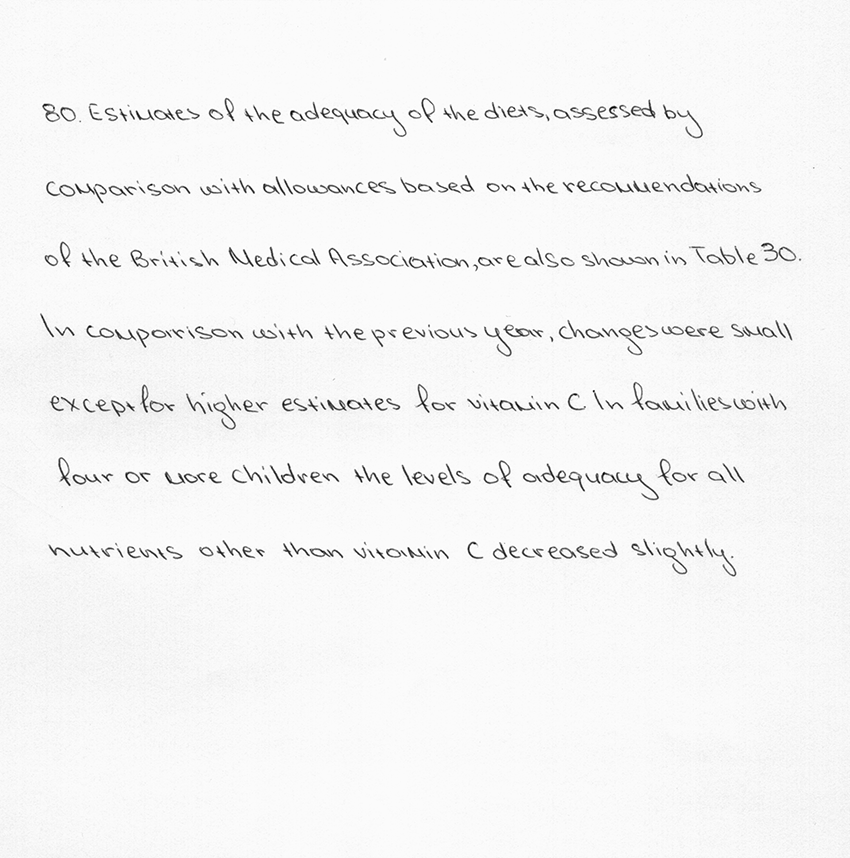 80. Estimates of the adequacy of the diets, assessed by
comparison with allowances based on the recommendations
of the British Medical Association, are also shown in Table 30.
In comparison with the previous year, changes were small
except for higher estimates for vitamin C In families with
four or more children the levels of adequacy for all
nutrients other than vitamin C decreased slightly.